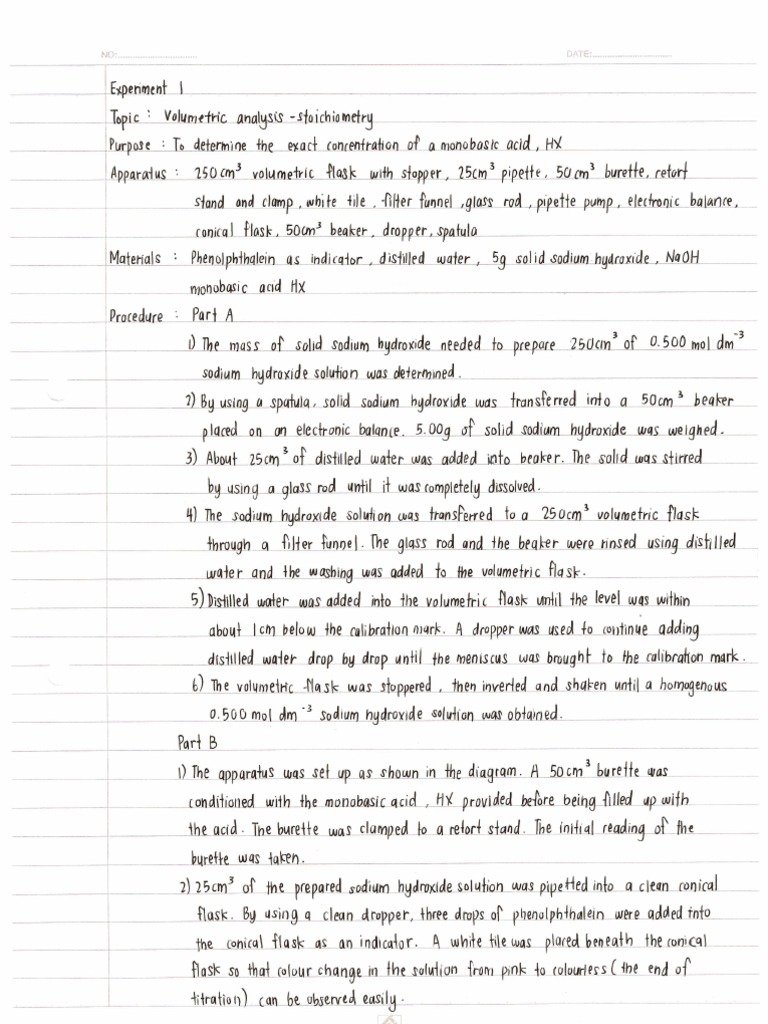 NO:
DATE:
Experiment 1
Topic : Volumetric analysis - stoichiometry
Purpose : To determine the exact concentration of a monobasic acid, HX
Apparatus : 250cm³ volumetric flask with stopper, 25cm³ pipette, 50cm³ burette, retort
stand and clamp, white tile, filter funnel, glass rod, pipette pump, electronic balance,
conical flask, 50cm³ beaker, dropper, spatula
Materials : Phenolphthalein as indicator, distilled water, 5g solid sodium hydroxide, NaOH
monobasic acid HX
Procedure : Part A
1) The mass of solid sodium hydroxide needed to prepare 250cm³ of 0.500 mol dm⁻³
sodium hydroxide solution was determined.
2) By using a spatula, solid sodium hydroxide was transferred into a 50cm³ beaker
placed on an electronic balance. 5.00g of solid sodium hydroxide was weighed.
3) About 25cm³ of distilled water was added into beaker. The solid was stirred
by using a glass rod until it was completely dissolved.
4) The sodium hydroxide solution was transferred to a 250cm³ volumetric flask
through a filter funnel. The glass rod and the beaker were rinsed using distilled
water and the washing was added to the volumetric flask.
5) Distilled water was added into the volumetric flask until the level was within
about 1cm below the calibration mark. A dropper was used to continue adding
distilled water drop by drop until the meniscus was brought to the calibration mark.
6) The volumetric flask was stoppered, then inverted and shaken until a homogenous
0.500 mol dm⁻³ sodium hydroxide solution was obtained.
Part B
1) The apparatus was set up as shown in the diagram. A 50cm³ burette was
conditioned with the monobasic acid, HX provided before being filled up with
the acid. The burette was clamped to a retort stand. The initial reading of the
burette was taken.
2) 25cm³ of the prepared sodium hydroxide solution was pipetted into a clean conical
flask. By using a clean dropper, three drops of phenolphthalein were added into
the conical flask as an indicator. A white tile was placed beneath the conical
flask so that colour change in the solution from pink to colourless (the end of
titration) can be observed easily.